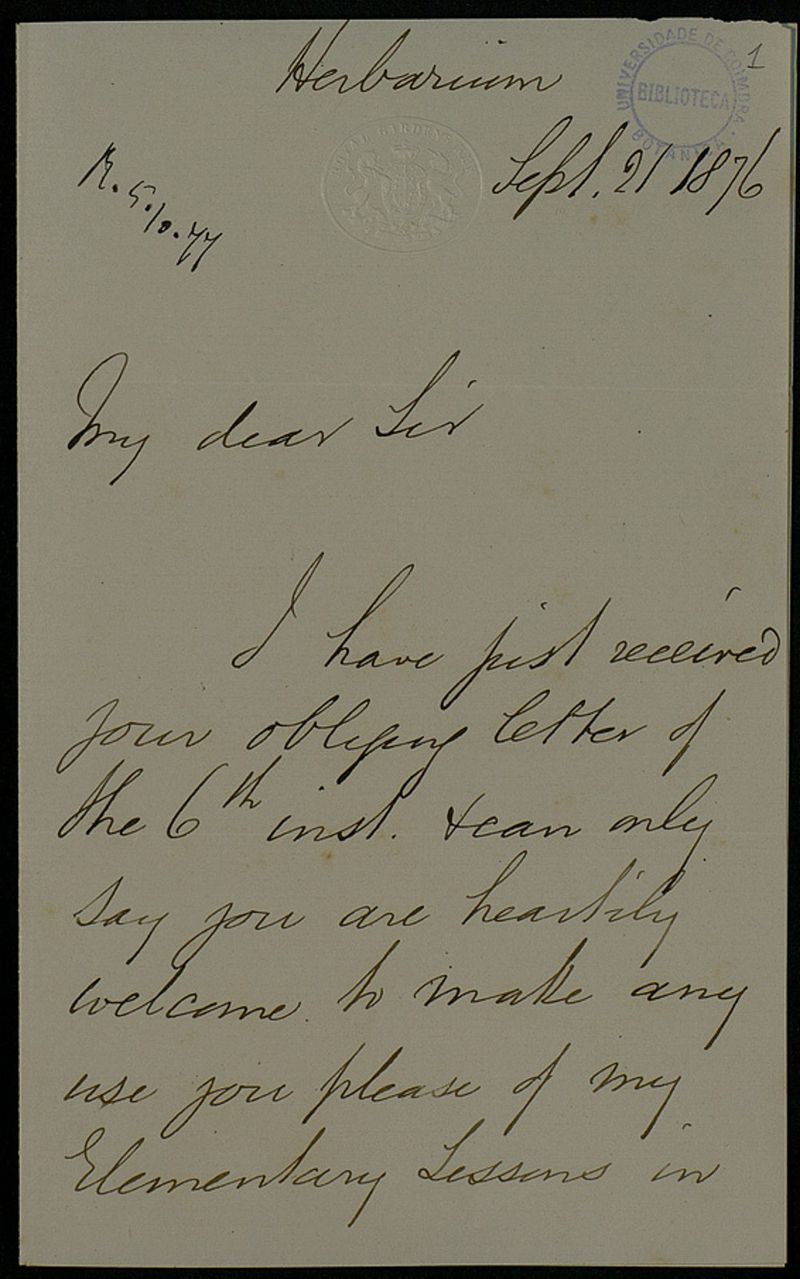 1
UNIVERSIDADE DE COIMBRA
BIBLIOTECA
BOTANICA
Herbarium
ROYAL GARDENS KEW
Sept. 21 1876
R. 5.10.77
My dear Sir
I have just received
your obliging letter of
the 6th inst. & can only
say you are heartily
welcome to make any
use you please of my
Elementary Lessons in